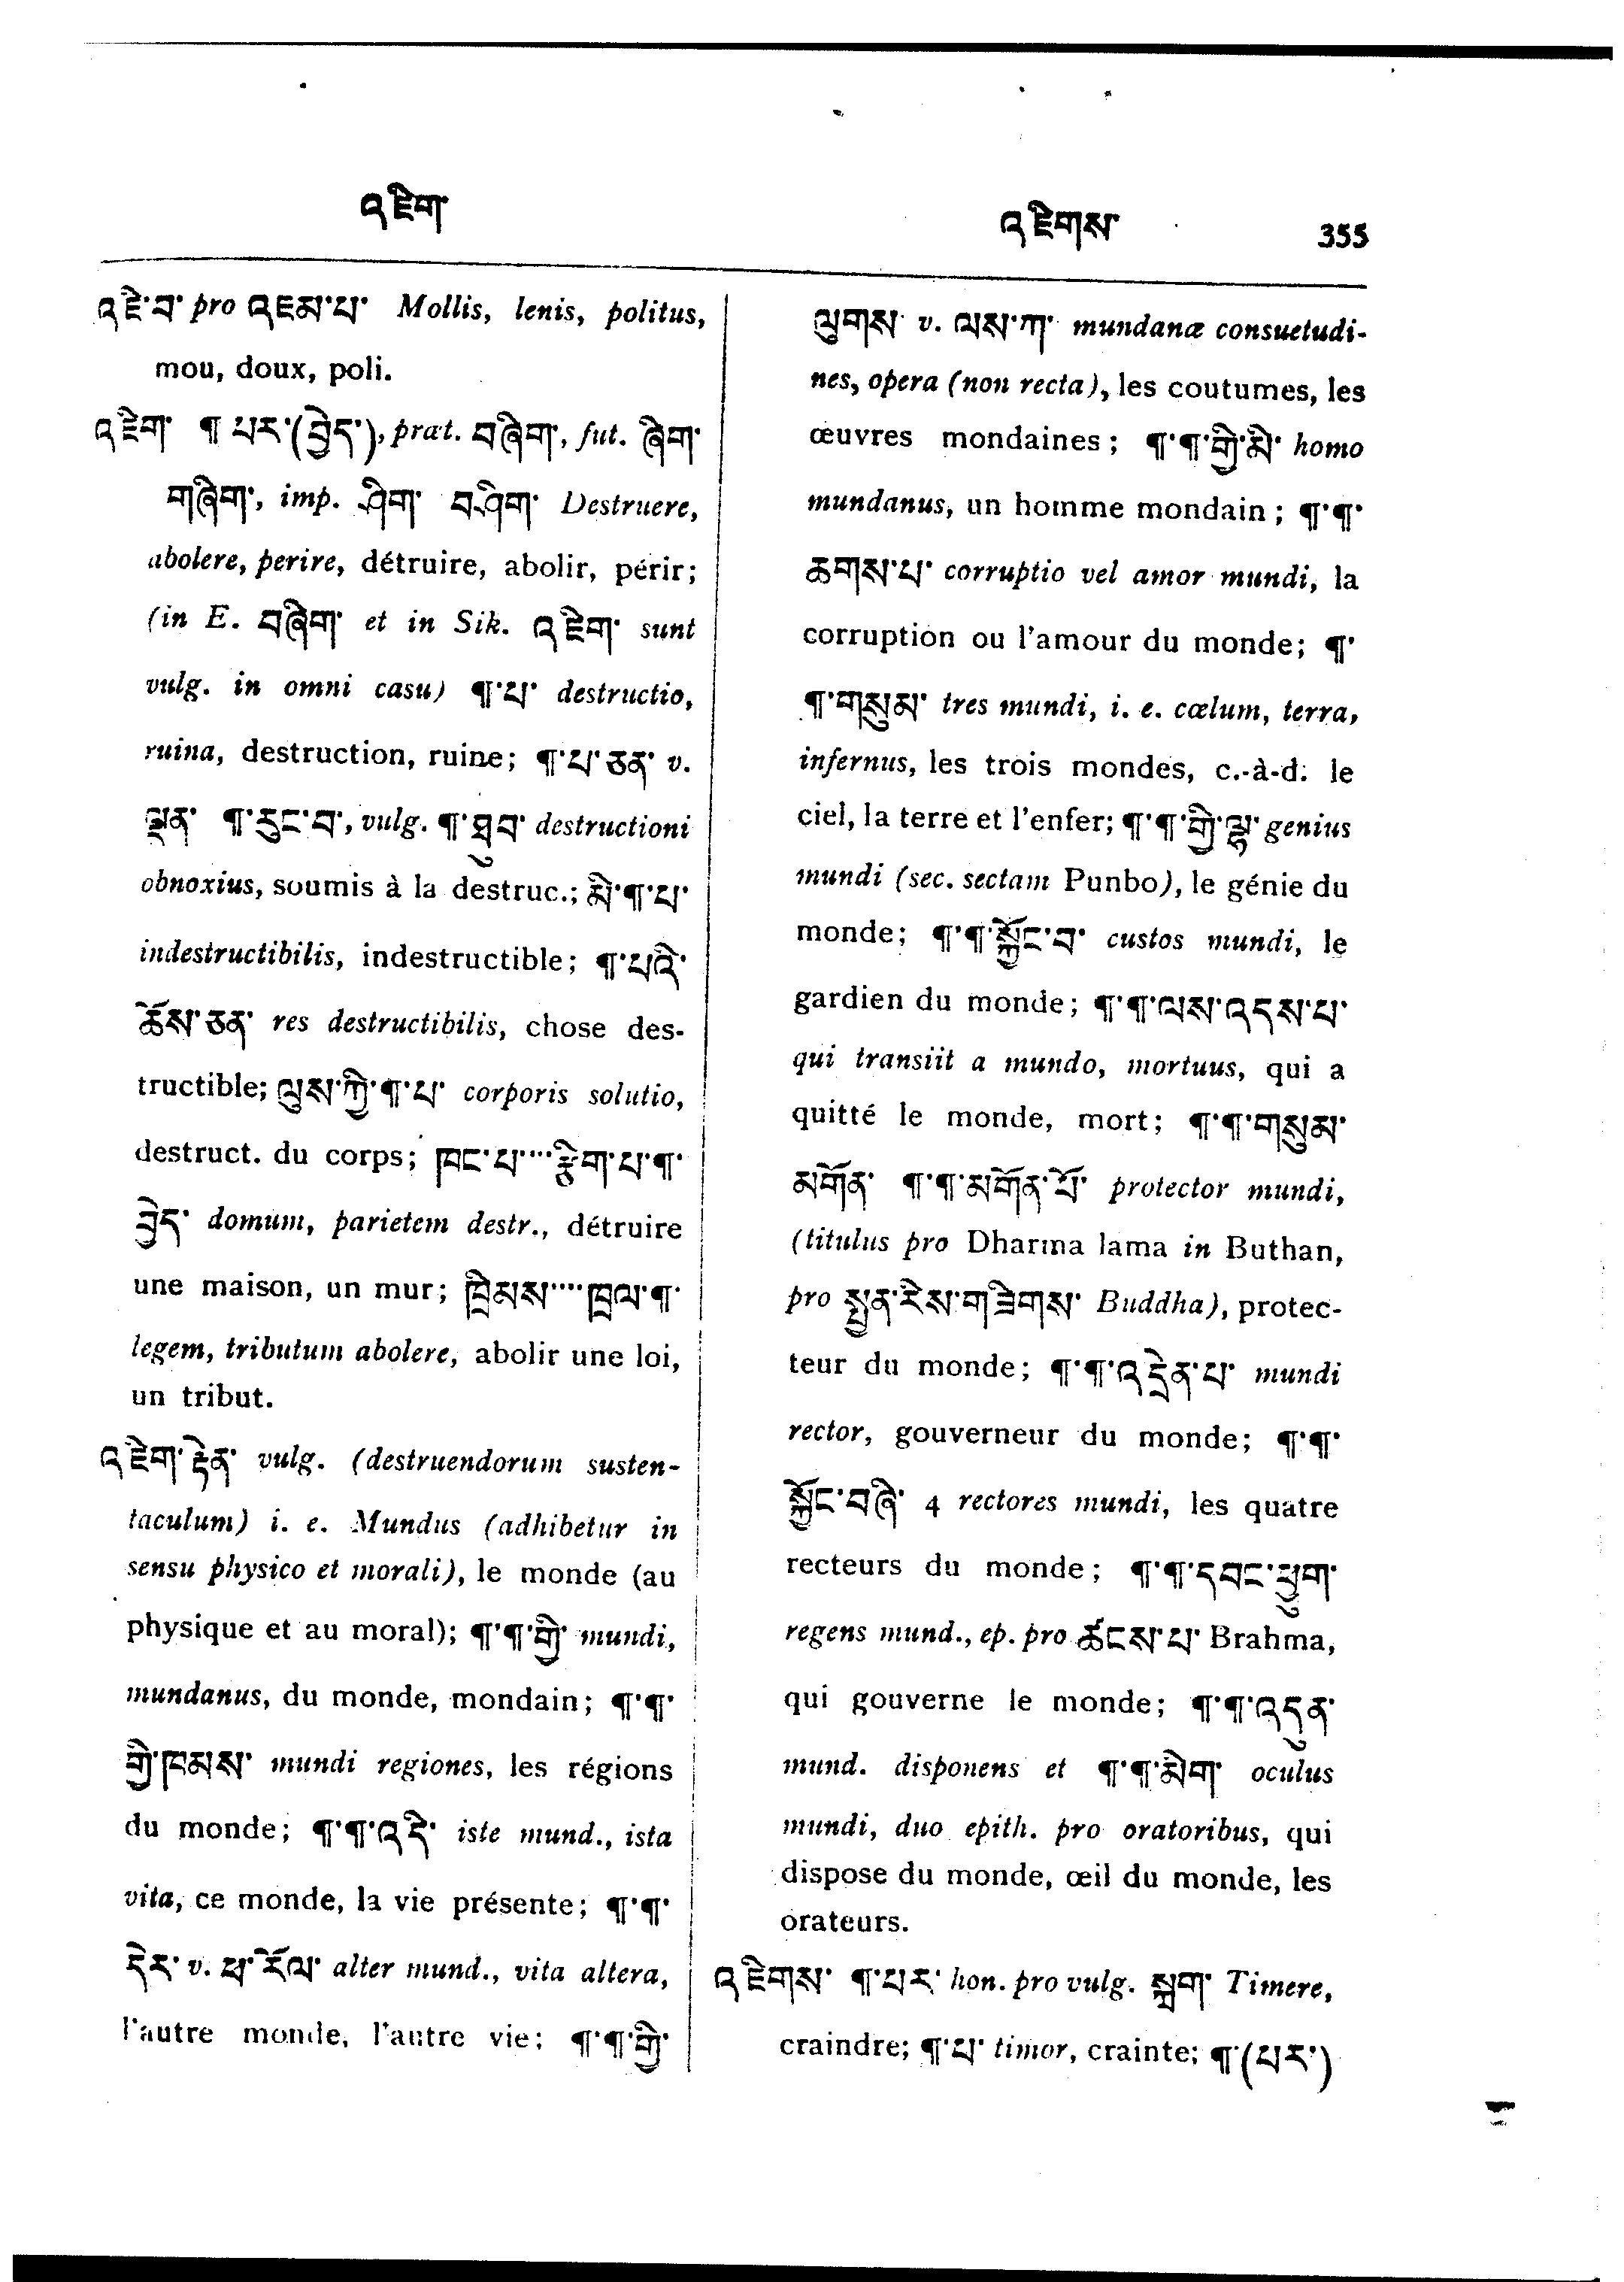 འཇིག་
འཇིགས་ 355
འཇེ་བ་ pro འཇམ་པ་ Mollis, lenis, politus,
mou, doux, poli.
འཇིག་ ¶ པར་(བྱེད་), præt. བཞིག་, fut. ཞིག་
གཞིག་, imp. ཤིག་ བཤིག་ Destruere,
abolere, perire, détruire, abolir, périr;
(in E. བཞིག་ et in Sik. འཇིག་ sunt
vulg. in omni casu) ¶་པ་ destructio,
ruina, destruction, ruine; ¶་པ་ཅན་ v.
ལྡན་ ¶་རུང་བ་, vulg. ¶་ཐུབ་ destructioni
obnoxius, soumis à la destruc.; མི་¶་པ་
indestructibilis, indestructible; ¶་པའི་
ཆོས་ཅན་ res destructibilis, chose des-
tructible; ལུས་ཀྱི་¶་པ་ corporis solutio,
destruct. du corps; ཁང་པ་····རྩིག་པ་¶་
བྱེད་ domum, parietem destr., détruire
une maison, un mur; ཁྲིམས་····ཁྲལ་¶་
legem, tributum abolere, abolir une loi,
un tribut.
འཇིག་རྟེན་ vulg. (destruendorum susten-
taculum) i. e. Mundus (adhibetur in
sensu physico et morali), le monde (au
physique et au moral); ¶་¶་གྱི་ mundi,
mundanus, du monde, mondain; ¶་¶་
གྱི་ཁམས་ mundi regiones, les régions
du monde; ¶་¶་འདི་ iste mund., ista
vita, ce monde, la vie présente; ¶་¶་
དེར་ v. ཕ་རོལ་ alter mund., vita altera,
l'autre monde, l'autre vie; ¶་¶་གྱི་
ལུགས་ v. ལས་ཀ་ mundanæ consuetudi-
nes, opera (non recta), les coutumes, les
œuvres mondaines; ¶་¶་གྱི་མི་ homo
mundanus, un homme mondain; ¶་¶་
ཆགས་པ་ corruptio vel amor mundi, la
corruption ou l'amour du monde; ¶་
¶་གསུམ་ tres mundi, i. e. cœlum, terra,
infernus, les trois mondes, c.-à-d. le
ciel, la terre et l'enfer; ¶་¶་གྱི་ལྷ་ genius
mundi (sec. sectam Punbo), le génie du
monde; ¶་¶་སྐྱོང་བ་ custos mundi, le
gardien du monde; ¶་¶་ལས་འདས་པ་
qui transiit a mundo, mortuus, qui a
quitté le monde, mort; ¶་¶་གསུམ་
མགོན་ ¶་¶་མགོན་པོ་ protector mundi,
(titulus pro Dharma lama in Buthan,
pro སྤྱན་རེས་གཟིགས་ Buddha), protec-
teur du monde; ¶་¶་འདྲེན་པ་ mundi
rector, gouverneur du monde; ¶་¶་
སྐྱོང་བཞི་ 4 rectores mundi, les quatre
recteurs du monde; ¶་¶་དབང་ཕྱུག་
regens mund., ep. pro ཚངས་པ་ Brahma,
qui gouverne le monde; ¶་¶་འདུན་
mund. disponens et ¶་¶་མིག་ oculus
mundi, duo epith. pro oratoribus, qui
dispose du monde, œil du monde, les
orateurs.
འཇིགས་ ¶་པར་ hon. pro vulg. སྐྲག་ Timere,
craindre; ¶་པ་ timor, crainte; ¶་(པར་)